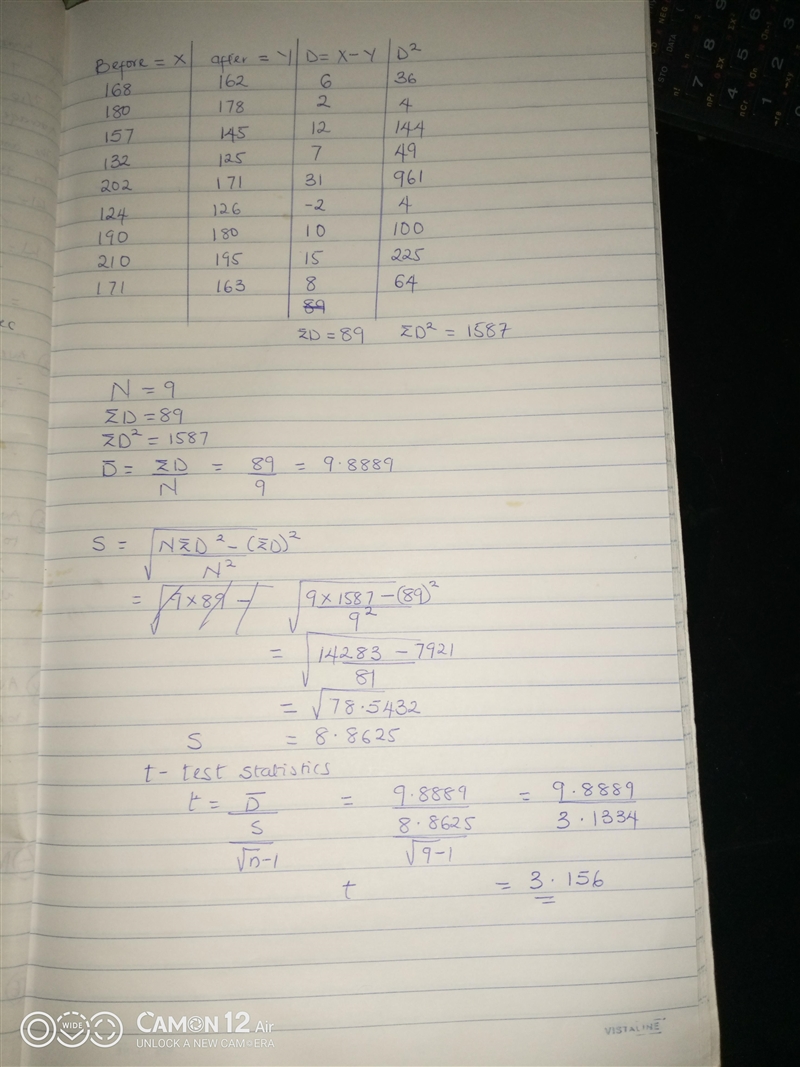 Before = X after = Y D = X - Y D²
168 162 6 36
180 178 2 4
157 145 12 144
132 125 7 49
202 171 31 961
124 126 -2 4
190 180 10 100
210 195 15 225
171 163 8 64
89
ΣD = 89 ΣD² = 1587
N = 9
ΣD = 89
ΣD² = 1587
D̄ = ΣD/N = 89/9 = 9.8889
S = √(NΣD² - (ΣD)²/N²)
= √9×89 - √(9×1587 - (89)²/9²)
= √(14283 - 7921/81)
= √78.5432
S = 8.8625
t - test statistics
t = D̄/(S/√n-1) = 9.8889/(8.8625/√9-1) = 9.8889/3.1334
t = 3.156
VISTALINE
WIDE CAMON 12 Air
UNLOCK A NEW CAMERA